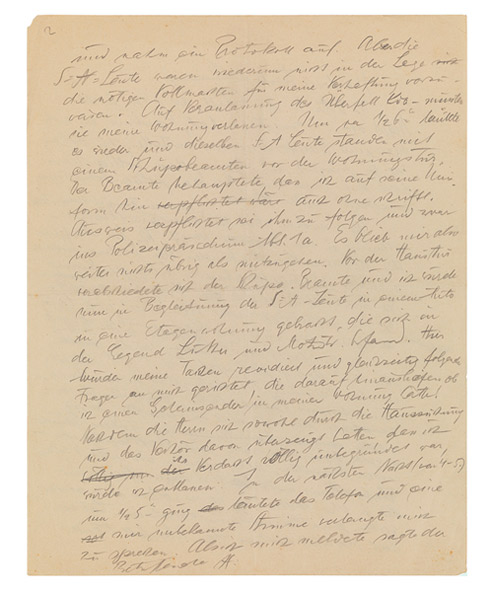 2
und nahm ein Protokoll auf. Aber die
S-A-Leute waren wiederum nicht in der Lage
die nötigen Vollmachten für meine Verhaftung vorzu-
weisen. Auf Veranlassung des Überfall Kdo. mussten
sie meine Wohnung verlassen. Um ca ½6h läutete
es wieder und dieselben S A Leute standen mit
einem Schupobeamten vor der Wohnungstür.
Der Beamte behauptete, dass ich auf seine Uni-
form hin auch ohne schriftl.
Ausweis verpflichtet sei ihm zu folgen und zwar
ins Polizeipräsidium Abt. 1a. Es blieb mir also
weiter nichts übrig als mitzugehen. Vor der Haustür
verabschiedete sich der Schupo. Beamte und ich wurde
nun in Begleitung der S-A-Leute in einem Auto
in eine Etagenwohnung gebracht, die sich in
der Gegend und befand. Hier
wurden meine Taschen revidiert und gleichzeitig folgende
Fragen an mich gerichtet die darauf hinausliefen ob
ich einen Geheimsender in meiner Wohnung hätte!
Nachdem die Herrn sich sowohl durch die Haussuchung
und das Verhör davon überzeugt hatten dass ich
der Verdacht völlig unbegründet war,
wurde ich entlassen. In der nächsten Nacht (von 4-5)
um ½5h ging läutete das Telefon und eine
mir unbekannte Stimme verlangte mich
zu sprechen. Als ich mich meldete sagte der